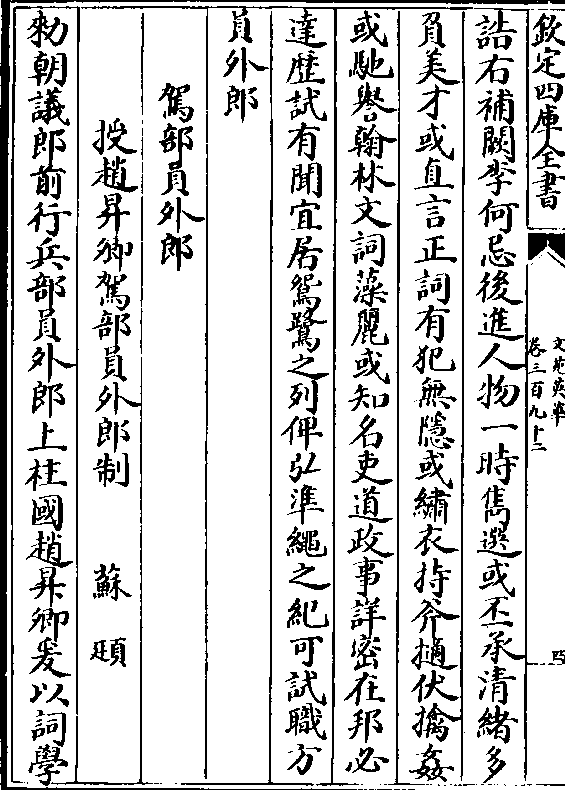 欽定四庫全書
文苑英華
卷三百九十二
四
誥右補闕李何忌後進人物一時雋選或丕承清緒多
負美才或直言正詞有犯無隱或繡衣持斧擿伏擒姦
或馳譽翰林文詞藻麗或知名吏道政事詳密在邦必
達歴試有聞宜居鴛鷺之列俾弘準繩之紀可試職方
員外郎
駕部員外郎
授趙昇卿駕部員外郎制 蘇頲
勑朝議郎前行兵部員外郎上柱國趙昇卿爰以詞學